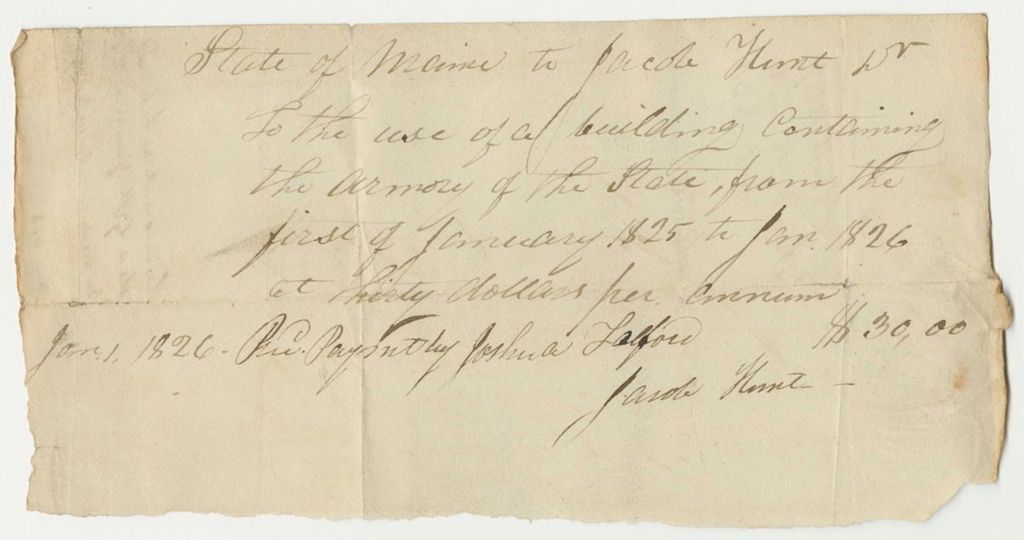 State of Maine to Jacob Hunt Dr
To the use of a building Containing
the Armory of the State, from the
first of January 1825 to Jan. 1826
at thirty dollars per annum
$30,00
Jan 1, 1826. Rec. Paymt by Joshua
Jacob Hunt